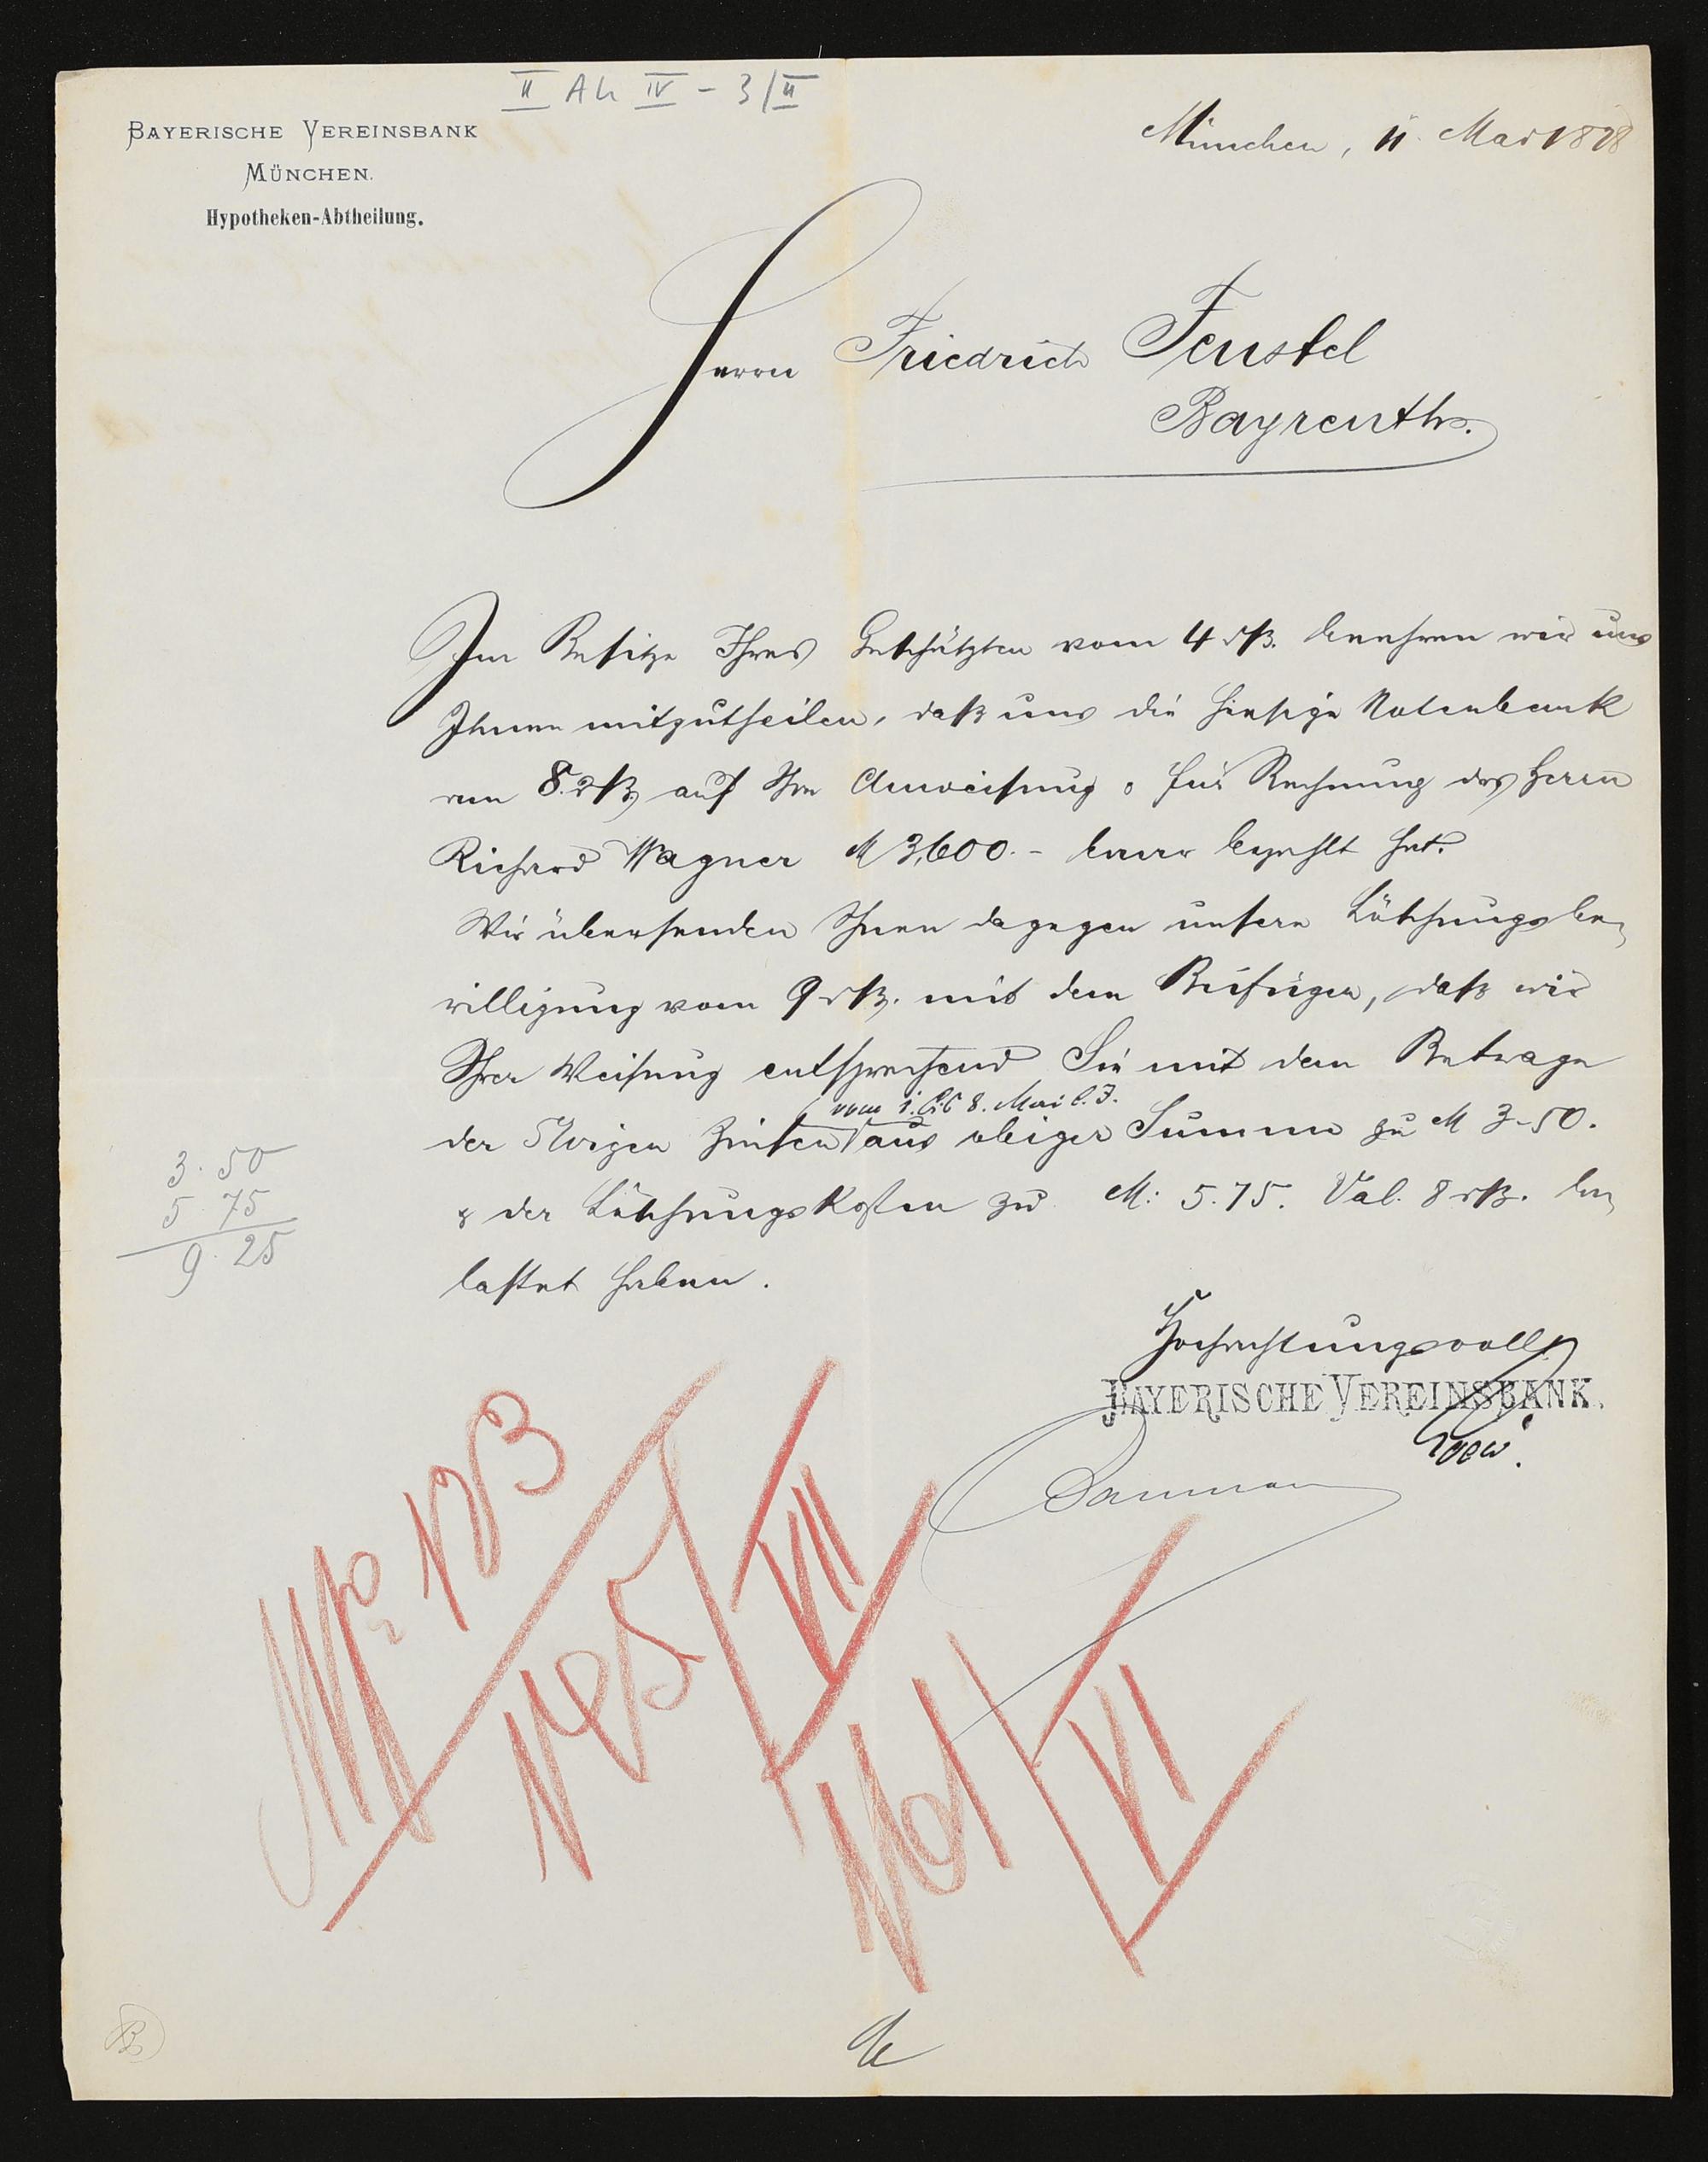 II Ah IV - 3/II
BAYERISCHE VEREINSBANK
MÜNCHEN.
Hypotheken-Abtheilung.
München, 11. Mai 1878
Herrn Friedrich Feustel
Bayreuth.
Im Besitze Ihres Geschätzten vom 4 dß. beehren wir uns
Ihnen mitzutheilen, daß uns die hiesige Notenbank
am 8. dß. auf Ihre Anweisung & für Rechnung des Herrn
Richard Wagner M 3,600.- baar bezahlt hat.
Wir übersenden Ihnen dagegen unsere Löschungsbe-
willigung vom 9 dß. mit dem Beifügen, daß wir
Ihrer Weisung entsprechend Sie mit dem Betrage
vom 1. bis 8. Mai l. J.
der Zinsen aus obiger Summe zu M 3.50.
& der Löschungskosten zu M: 5.75. Val. 8 dß. be-
lastet haben.
3. 50
5 75
9. 25
Hochachtungsvollst
BAYERISCHE VEREINSBANK.
No 5 VII
No 1 VI